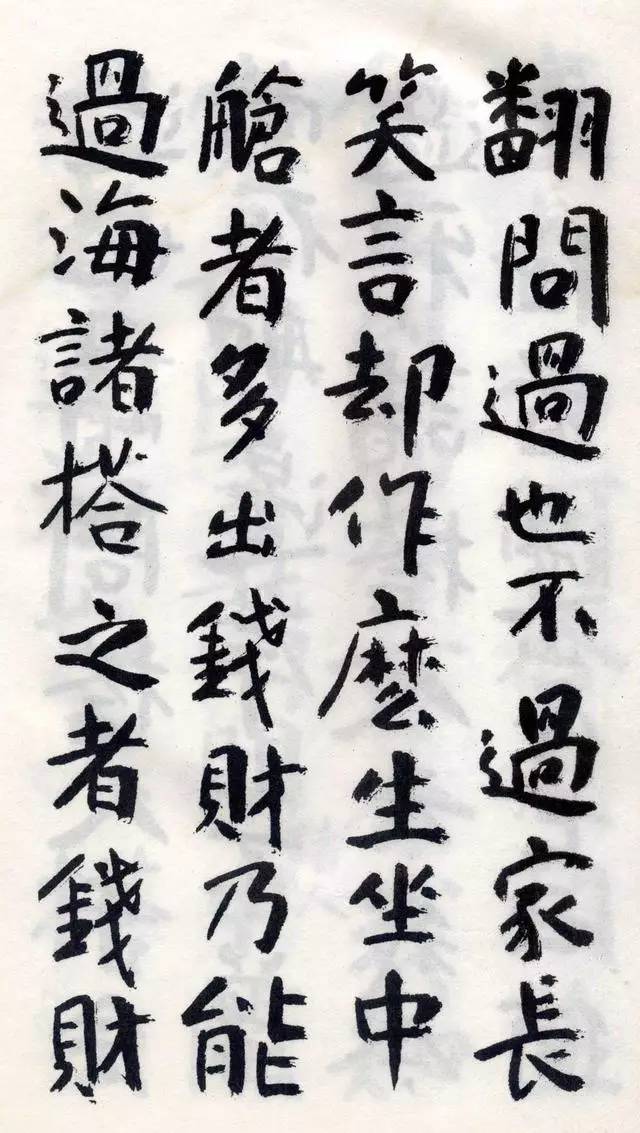 翻問過也不過家長
笑言却作麽生坐中
艙者多出錢財乃能
過海諸搭之者錢財